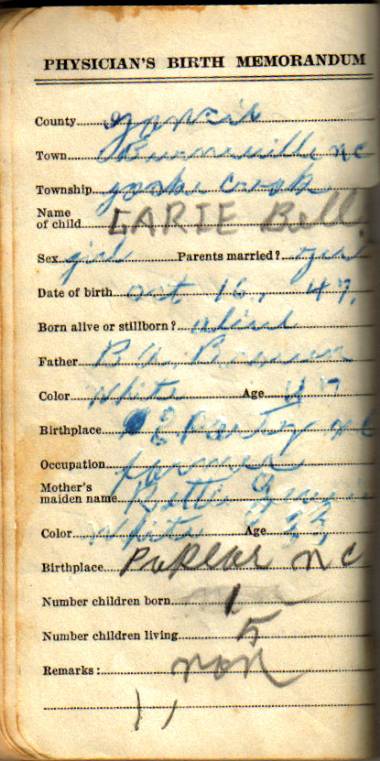 PHYSICIAN'S BIRTH MEMORANDUM
County
Town Burnsvill NC
Township Jacks Creek
Name
of child LARIE Bell
Sex girl Parents married?
Date of birth oct 16, 47,
Born alive or stillborn? alive
Father B.A.
Color White Age 47
Birthplace
Occupation farmer
Mother's
maiden name
Color White Age 33
Birthplace Poplar NC
Number children born 1
Number children living 5
Remarks: non